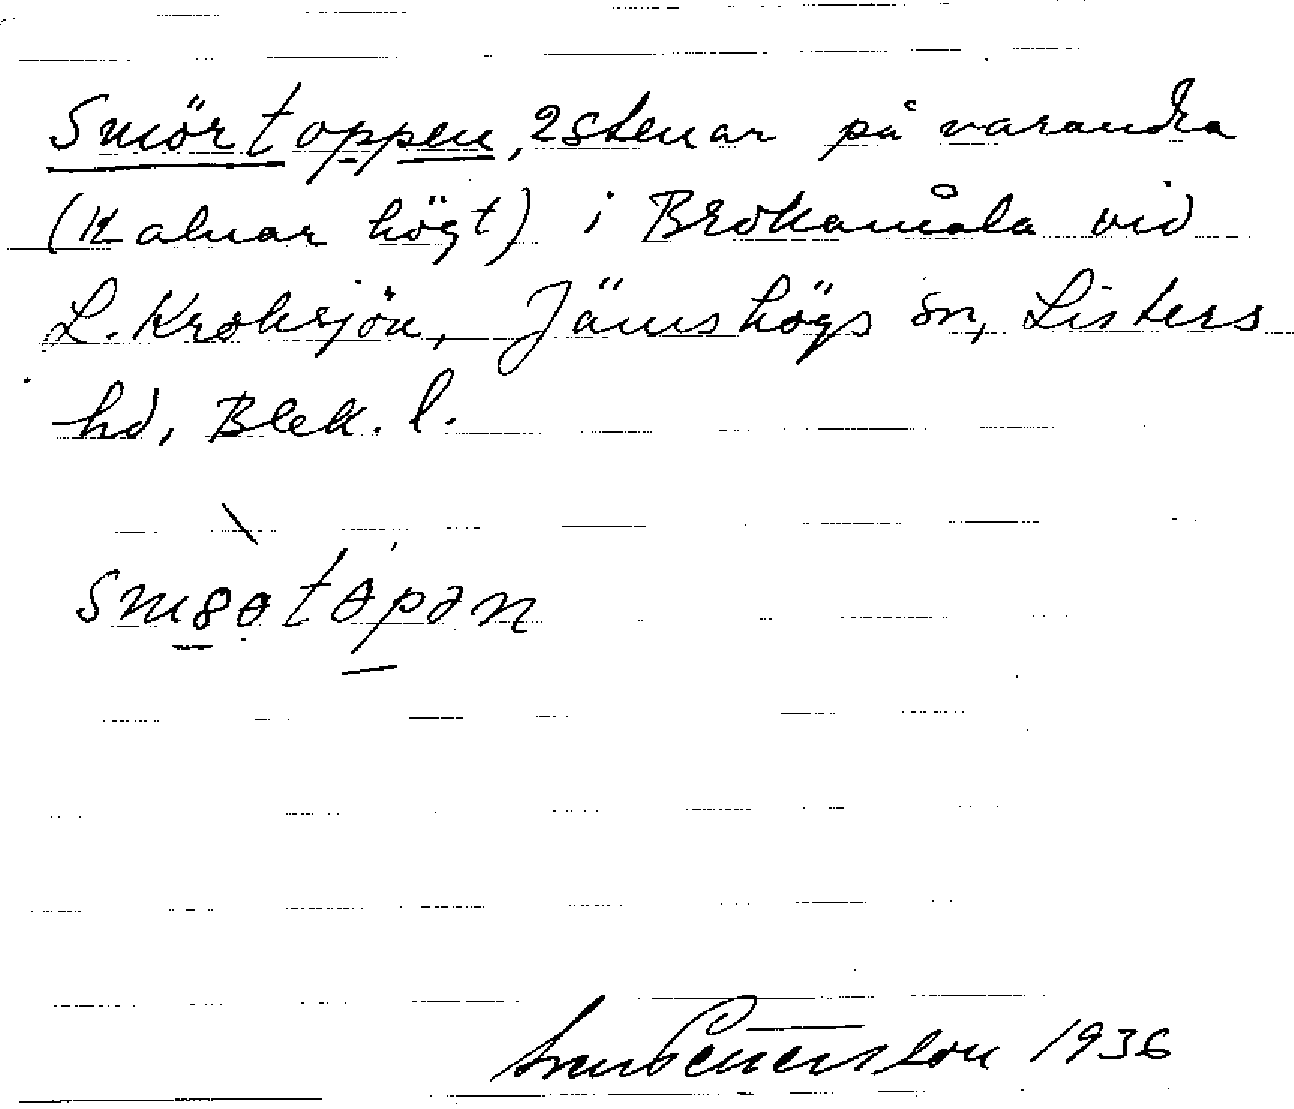 Smörtoppen, 2 stenar på varandra
(12 alnar högt) i Brokamåla vid
L. Kroksjön, Jämshögs sn, Listers
hd, Blek. l.
Sven Petersson 1936